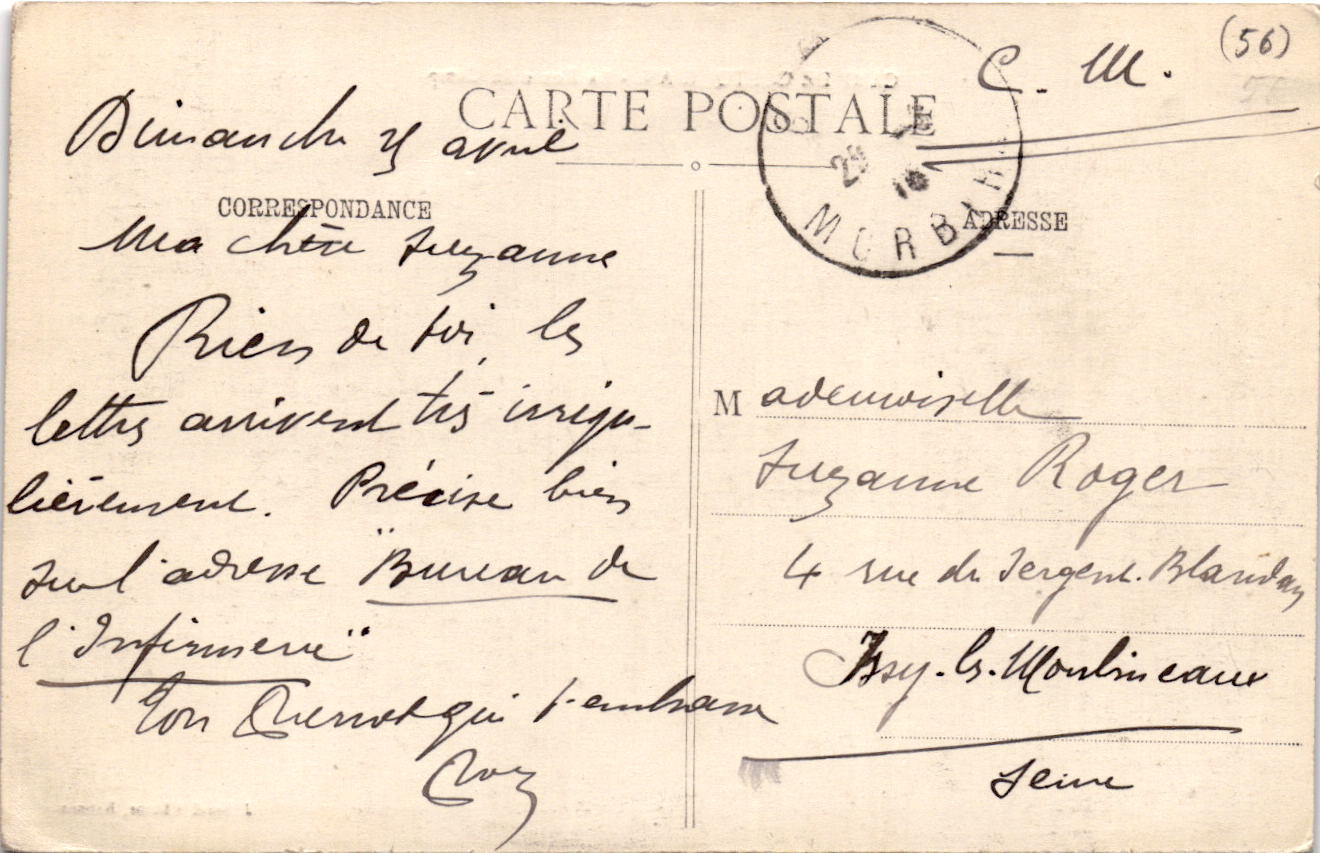 (56)
C. M.
CARTE POSTALE
MORBIHAN
CORRESPONDANCE
ADRESSE
Dimanche 25 avril
Ma chère Suzanne
Rien de toi, les
lettres arrivent très irrégu-
lièrement. Précise bien
sur l'adresse "Bureau de
l'Infirmerie"
Ton qui t'embrasse
Mademoiselle
Suzanne Roger
4 rue du Sergent. Blandan
Issy-les-Moulineaux
Seine